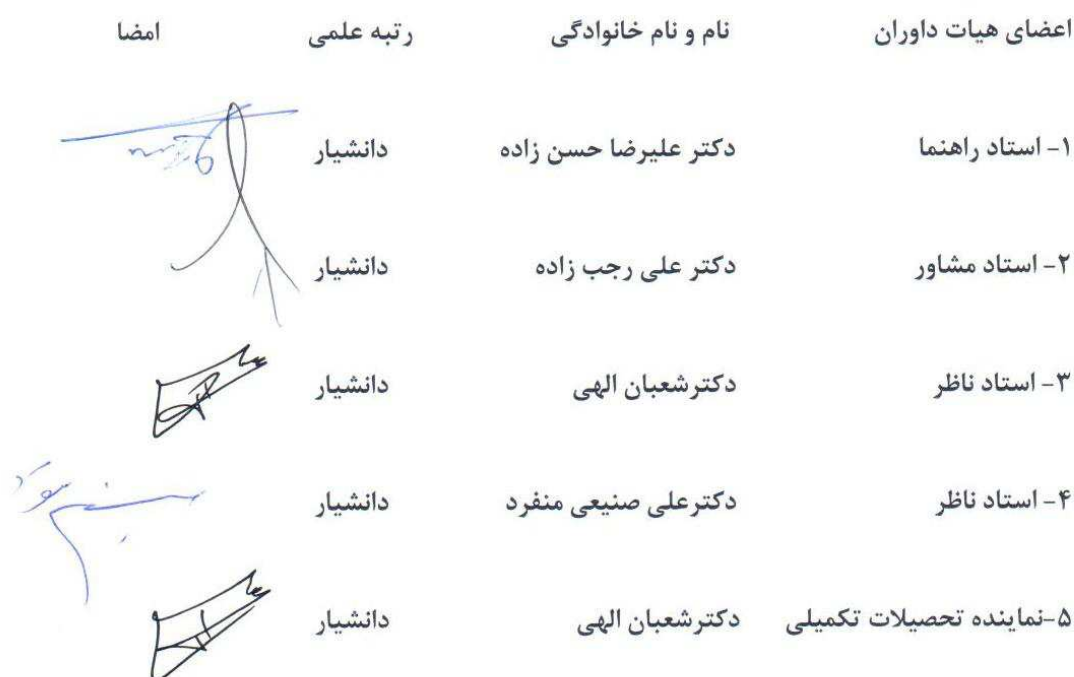 اعضای هیات داوران نام و نام خانوادگی رتبه علمی امضا
۱- استاد راهنما دکتر علیرضا حسن زاده دانشیار
۲- استاد مشاور دکتر علی رجب زاده دانشیار
۳- استاد ناظر دکترشعبان الهی دانشیار
۴- استاد ناظر دکترعلی صنیعی منفرد دانشیار
۵-نماینده تحصیلات تکمیلی دکترشعبان الهی دانشیار